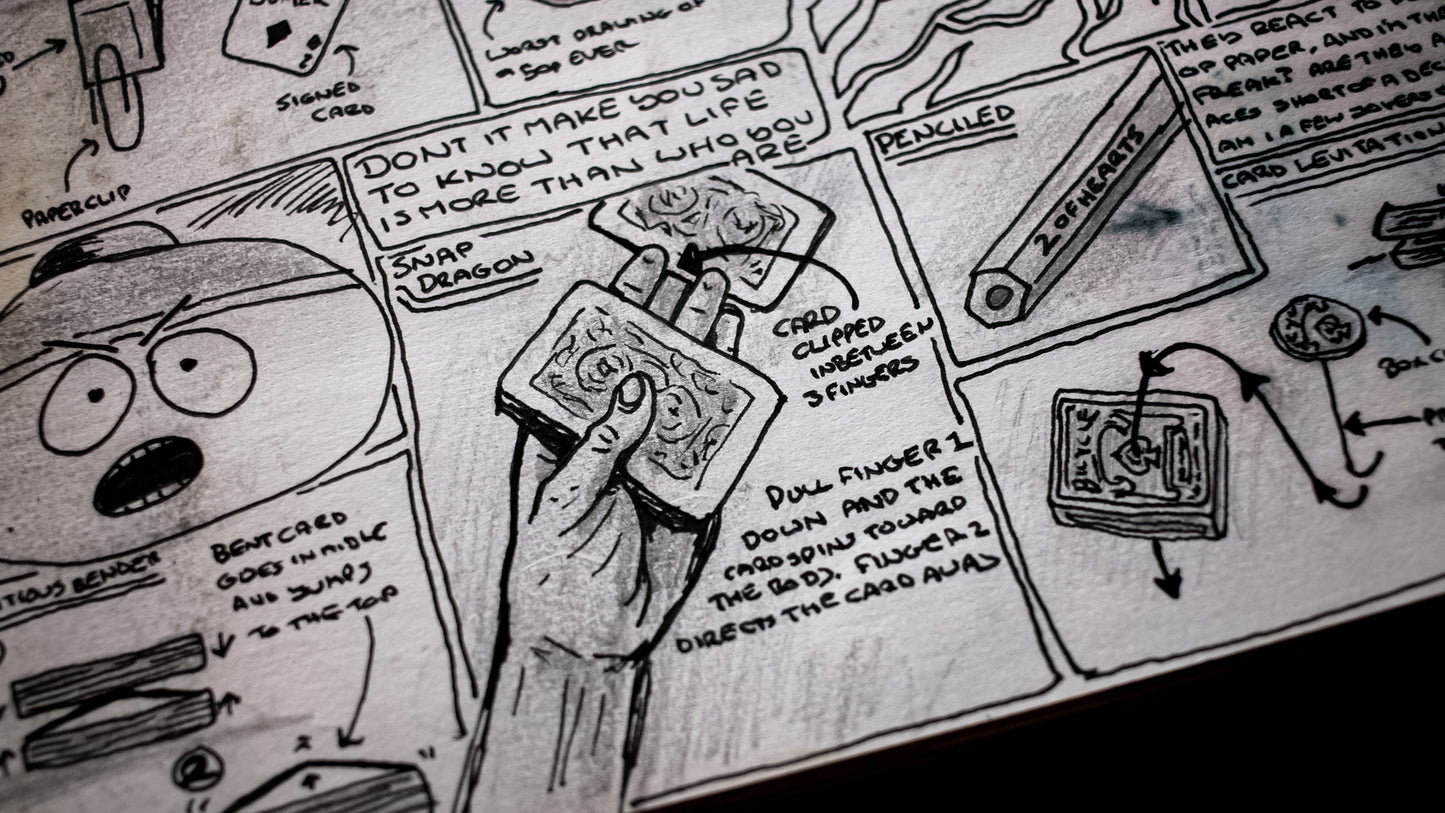 SIGNED
CARD
PAPERCLIP
WORST DRAWING OF
EVER
DONT IT MAKE YOU SAD
TO KNOW THAT LIFE
IS MORE THAN WHO YOU
ARE
SNAP
DRAGON
CARD
CLIPPED
INBETWEEN
3 FINGERS
PULL FINGER 1
DOWN AND THE
CARD SPINS TOWARD
THE BODY. FINGER 2
DIRECTS THE CARD AWAY
BENT CARD
GOES IN MIDLE
AND JUMPS
TO THE TOP
BENDER
2
PENCILED
2 OF HEARTS
THEY REACT TO
OF PAPER, AND I'M THE
FREAK? ARE THEY A
ACES SHORT OF A DEC
AM I A FEW JOKERS
CARD LEVITATION
BICYCLE
BOX